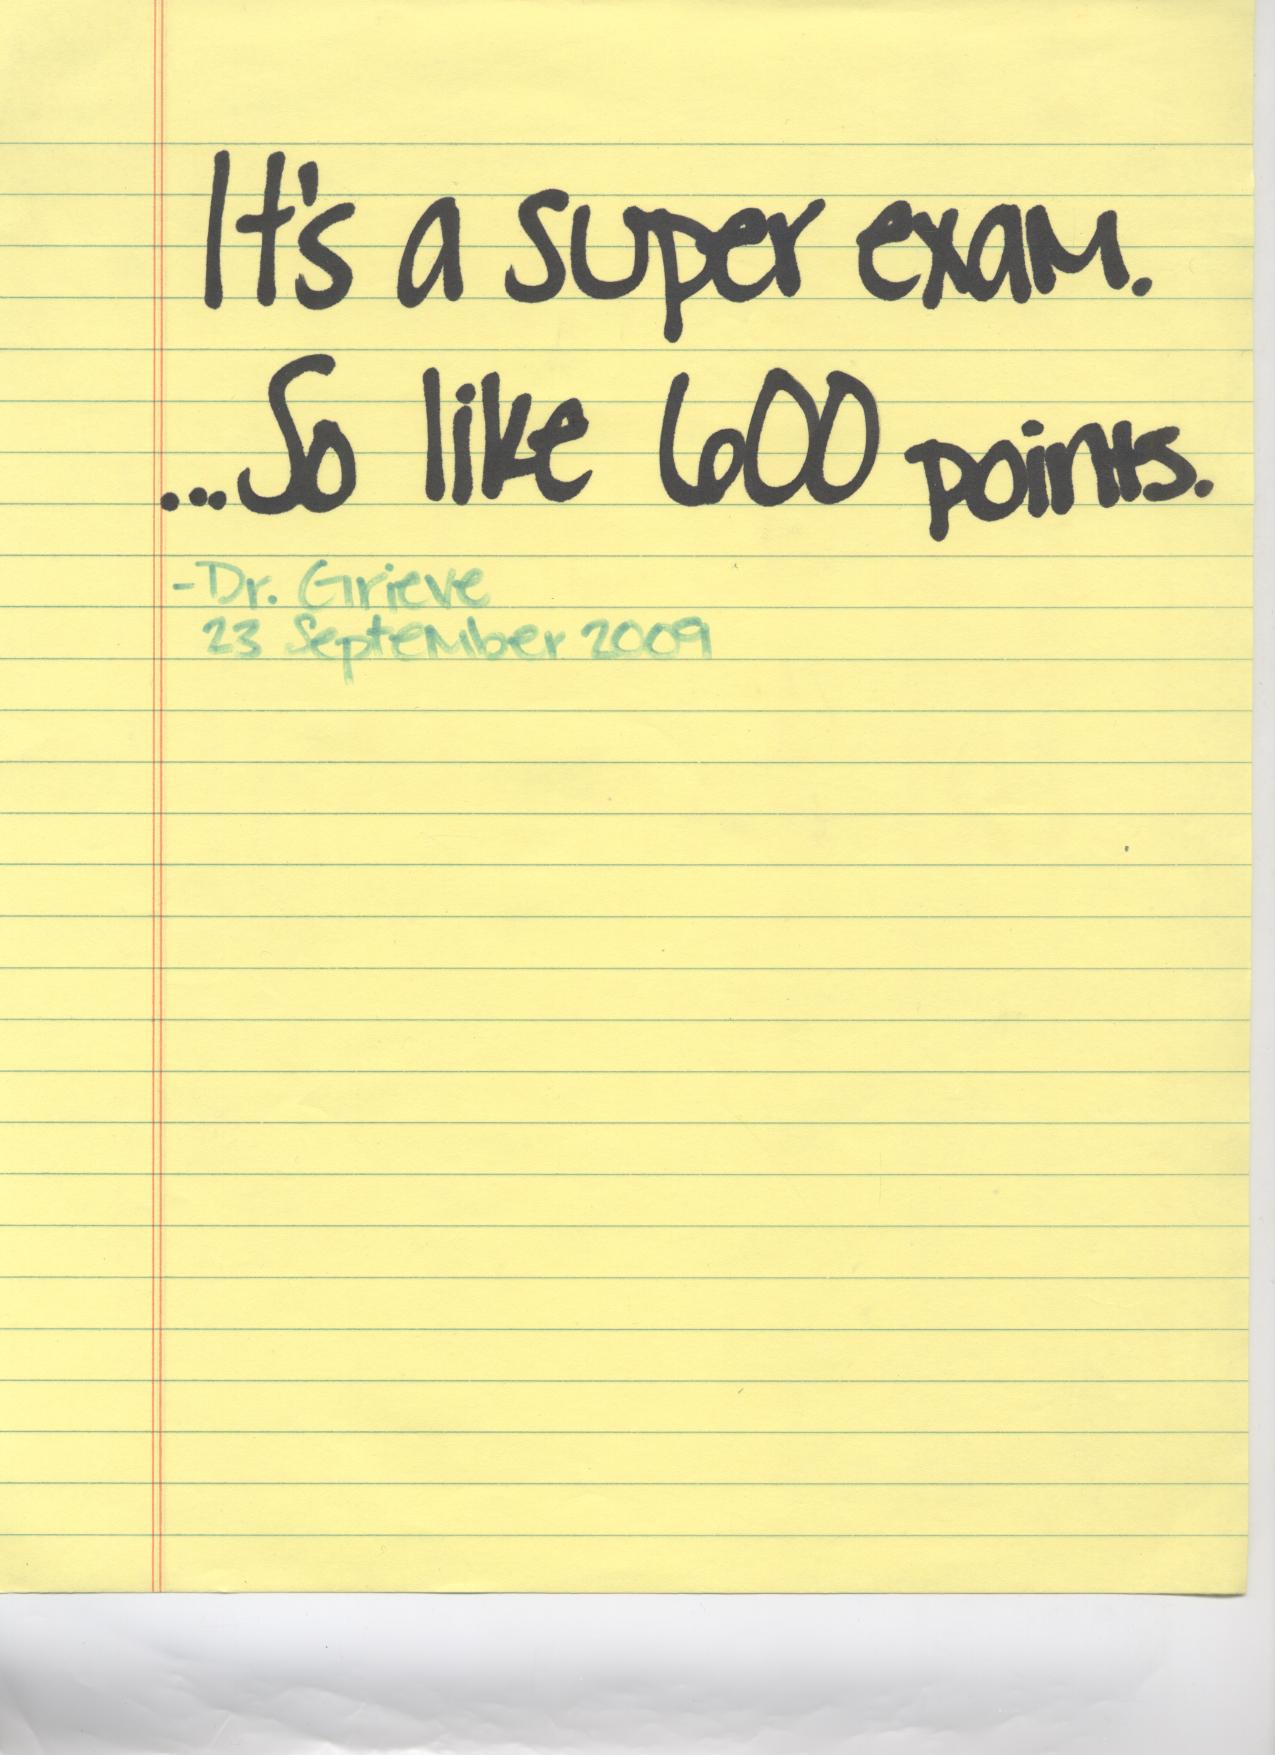 It's a super exam.
...So like 600 points.
-Dr. Grieve
23 September 2009